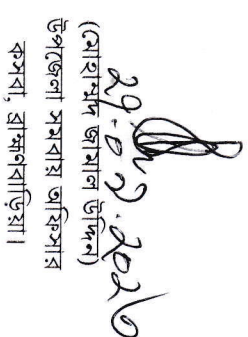 (মোহাম্মদ জামাল উদ্দিন)
উপজেলা সমবায় অফিসার
কসবা, ব্রাহ্মণবাড়িয়া।